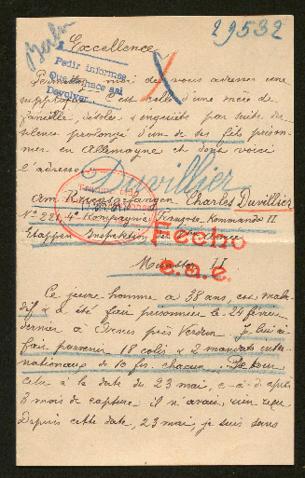 Berlin
29532
Excellence
Pedir informes
Que se hace asi
Devolver
Permettez moi de vous adresser une
supplique. C'est celle d'une mère de
famille, isolée & inquiète par suite du
silence prolongé d'un de ses fils prison-
nier en Allemagne et dont voici
l'adresse
Duvillier
Am Kriegsgefangen Charles Duvillier
Nº 221, 4e Kompagnie Kommando II
Etappen Inspektion
Fecho
c.a.e.
II
Ce jeune homme a 38 ans est mala-
dif & a été fait prisonnier le 24 février
dernier à Ornes près Verdun. Je lui ai
fait parvenir 18 colis & 2 mandats inter-
nationaux de 10 frs. chacun.
cela à la date du 23 mai, c-à-d après
3 mois de capture il n'avait rien reçu
Depuis cette date, 23 mai, je suis sans